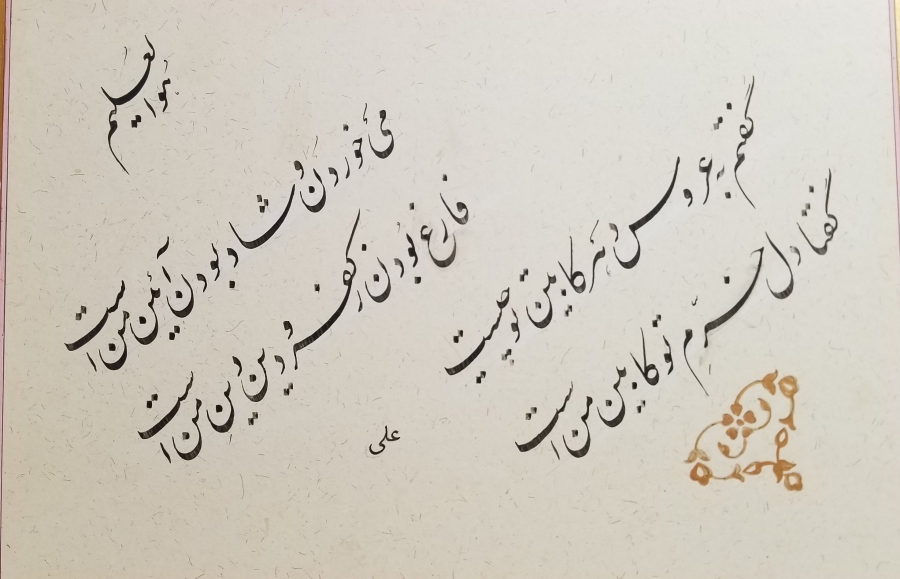 هوالعلیم
می خوردن و شاد بودن آئین من است
فارغ بودن ز کفر و دین دین من است
گفتم به عروس دهر کابین تو چیست
گفتا دل خرّم تو کابین من است
علی